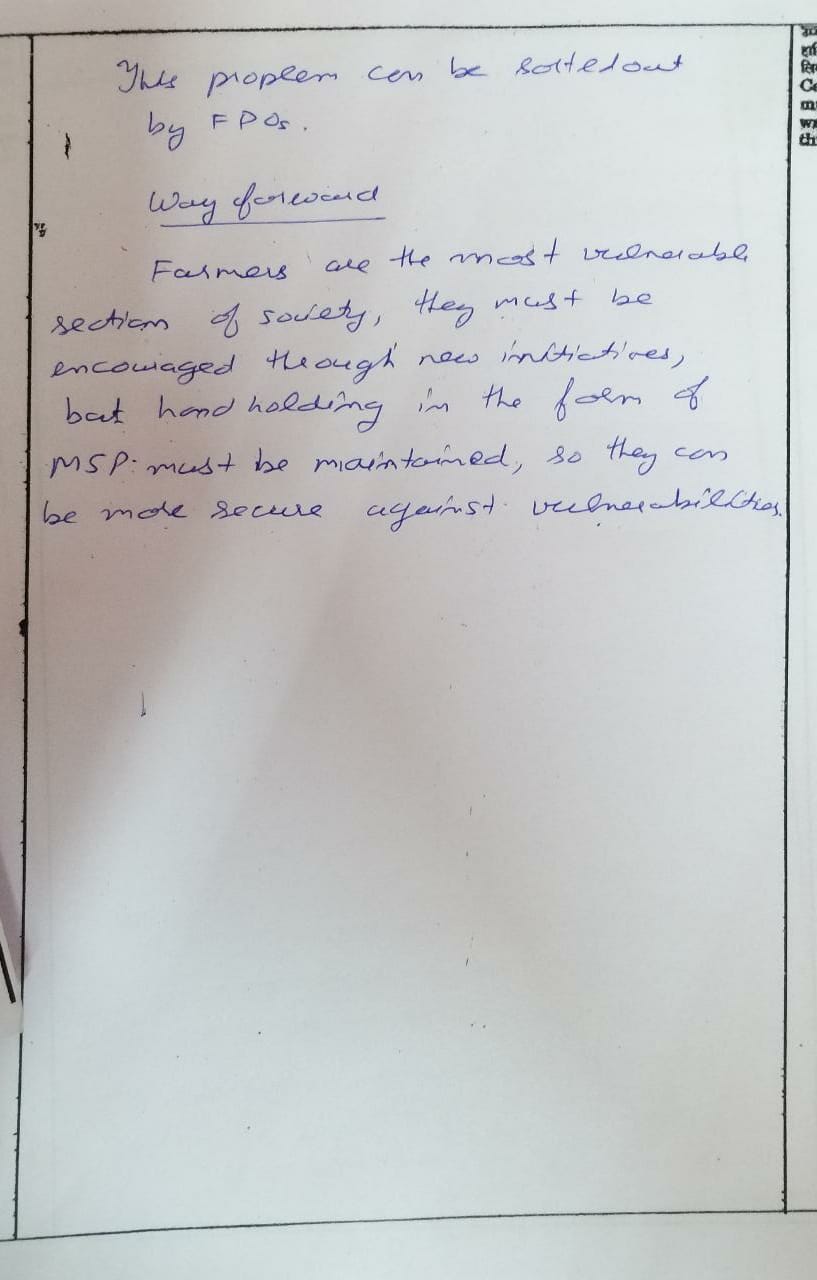 This proplem can be sorted out
by FPOs.
Way forward
Farmers are the most vulnerable
section of society, they must be
encouraged through new initiatives,
but hand holding in the form of
MSP must be maintained, so they can
be more secure against vulnerabilities.